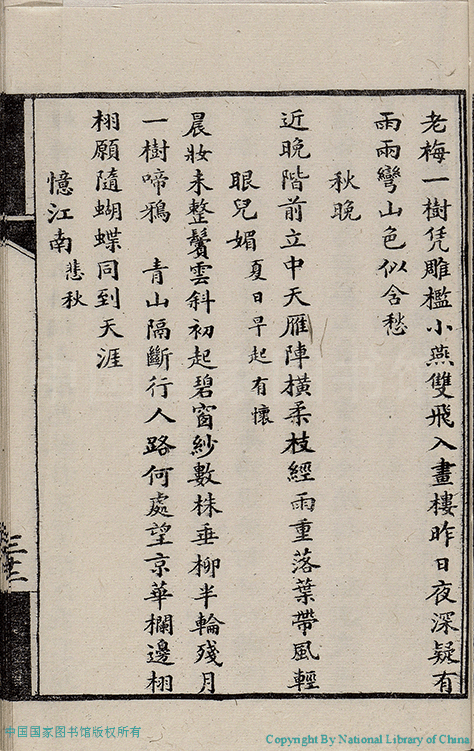 老梅一樹凭雕檻小燕雙飛入畫樓昨日夜深疑有
雨兩彎山色似含愁
秋晚
近晚階前立中天雁陣橫柔枝經雨重落葉帶風輕
眼兒媚 夏日早起有懷
晨妝未整鬢雲斜初起碧窗紗數株垂柳半輪殘月
一樹啼鴉 青山隔斷行人路何處望京華欄邊栩
栩願隨蝴蝶同到天涯
憶江南 悲秋
中国国家图书馆版权所有
Copyright By National Library of China